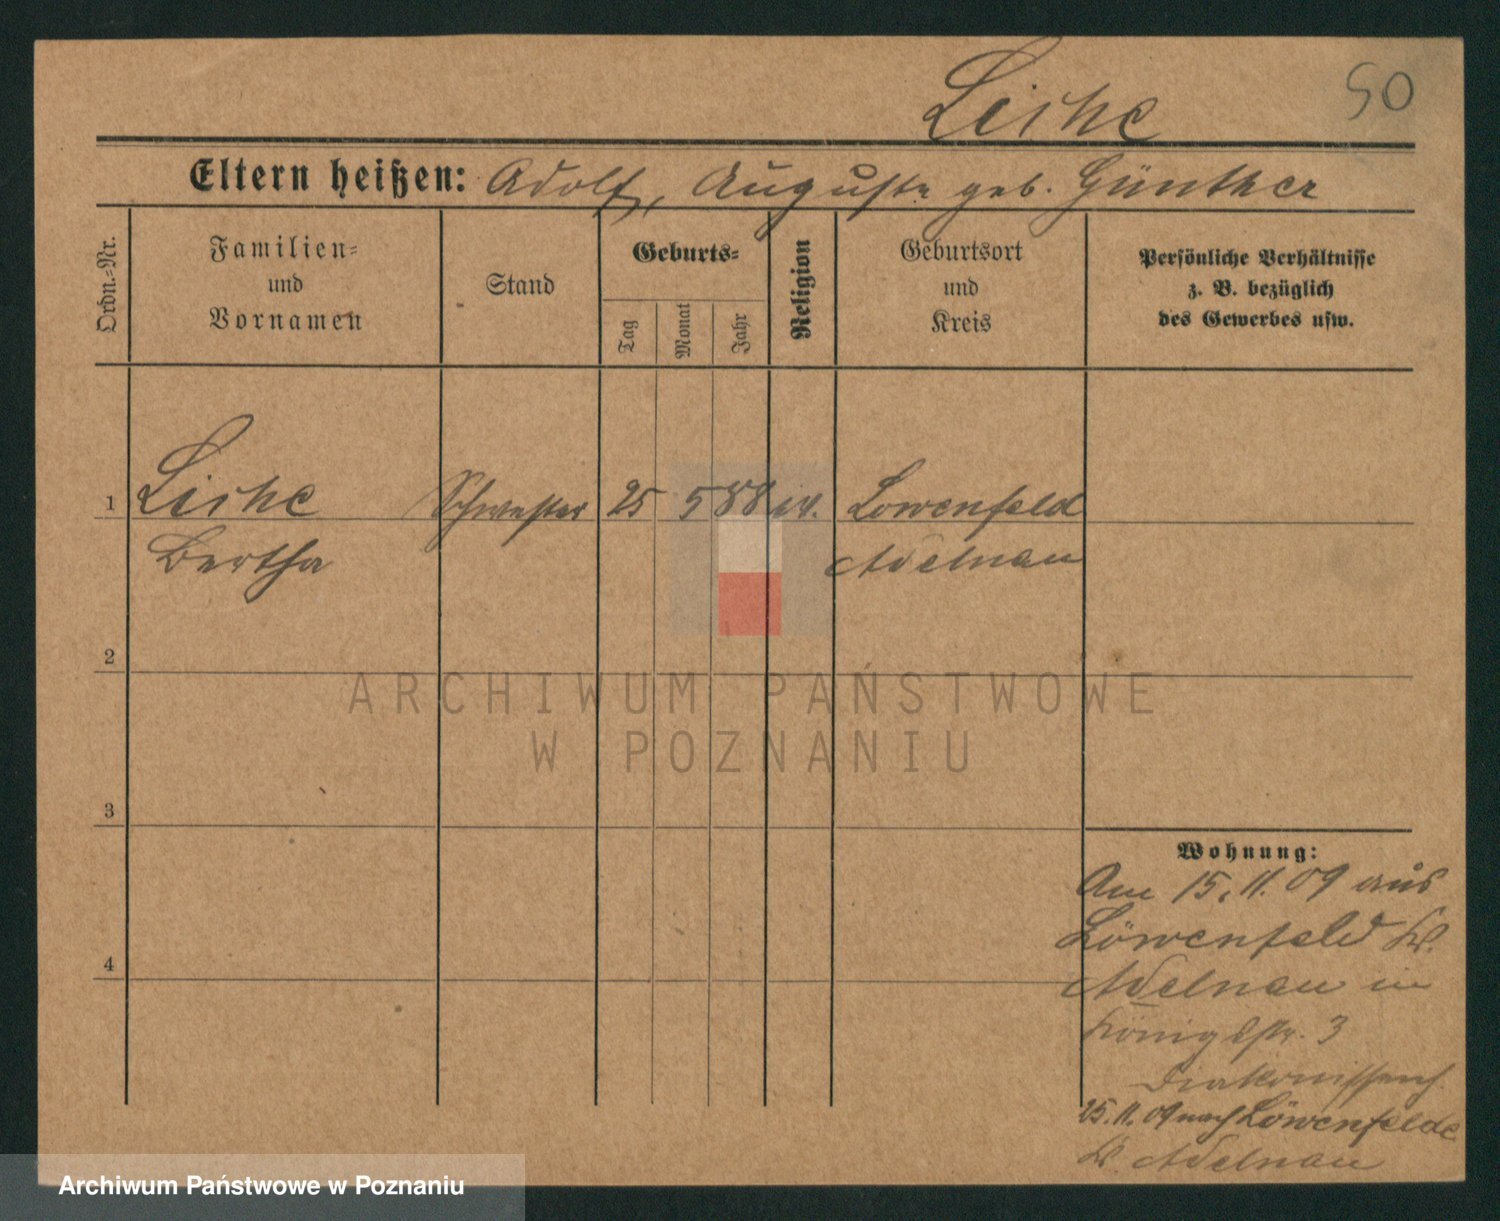 Leske
50
Eltern heißen: Adolf, Auguste geb. Günther
Ordn.-Nr.
Familien- und Vornamen
Stand
Geburts-
Tag
Monat
Jahr
Religion
Geburtsort und Kreis
Persönliche Verhältnisse
z. B. bezüglich
des Gewerbes usw.
1 Leske Schwester 25 5 88 ev. Löwenfeld
Bertha Adelnau
2
3
4
Wohnung:
Am 15.11.09 aus
Löwenfeld Kr.
Adelnau in
Königsstr. 3
Diakonissenh.
25.11.09 nach Löwenfelde
Kr. Adelnau
ARCHIWUM PAŃSTWOWE
W POZNANIU
Archiwum Państwowe w Poznaniu